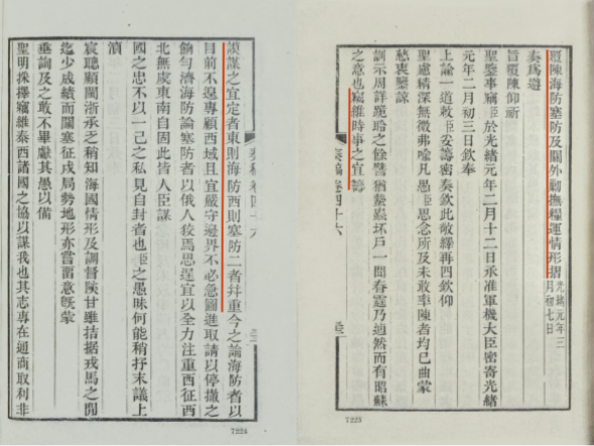 覆陳海防塞防及關外勦撫糧運情形摺 光緒元年三月初七日
奏爲遵
旨覆陳仰祈
聖鑒事竊臣於光緒元年二月十二日承准軍機大臣密寄光緒
元年二月初三日欽奉
上諭一道敕臣妥籌密奏欽此敬繹再四欽仰
聖慮精深無微弗喻凡愚臣思念所及未敢率陳者均已曲蒙
慈衷鑒諒
訓示周詳跪聆之餘譬猶蟄蟲坏戶一聞春霆乃逌然而有昭蘇
之意也竊維時事之宜籌
奏稿卷四十六
7223
謨謀之宜定者東則海防西則塞防二者幷重今之論海防者以
目前不遑專顧西域且宜嚴守邊界不必急圖進取請以停撤之
餉勻濟海防論塞防者以俄人狡焉思逞宜以全力注重西征西
北無虞東南自固此皆人臣謀
國之忠不以一己之私見自封者也臣之愚昧何能稍抒末議上
瀆
宸聰顧閩浙承乏稍知海國情形及調督陝甘雖拮据戎馬之閒
迄少成績而關塞征戍局勢地形亦嘗留意旣蒙
垂詢及之敢不畢獻其愚以備
聖明採擇竊維泰西諸國之協以謀我也其志專在通商取利非
7224